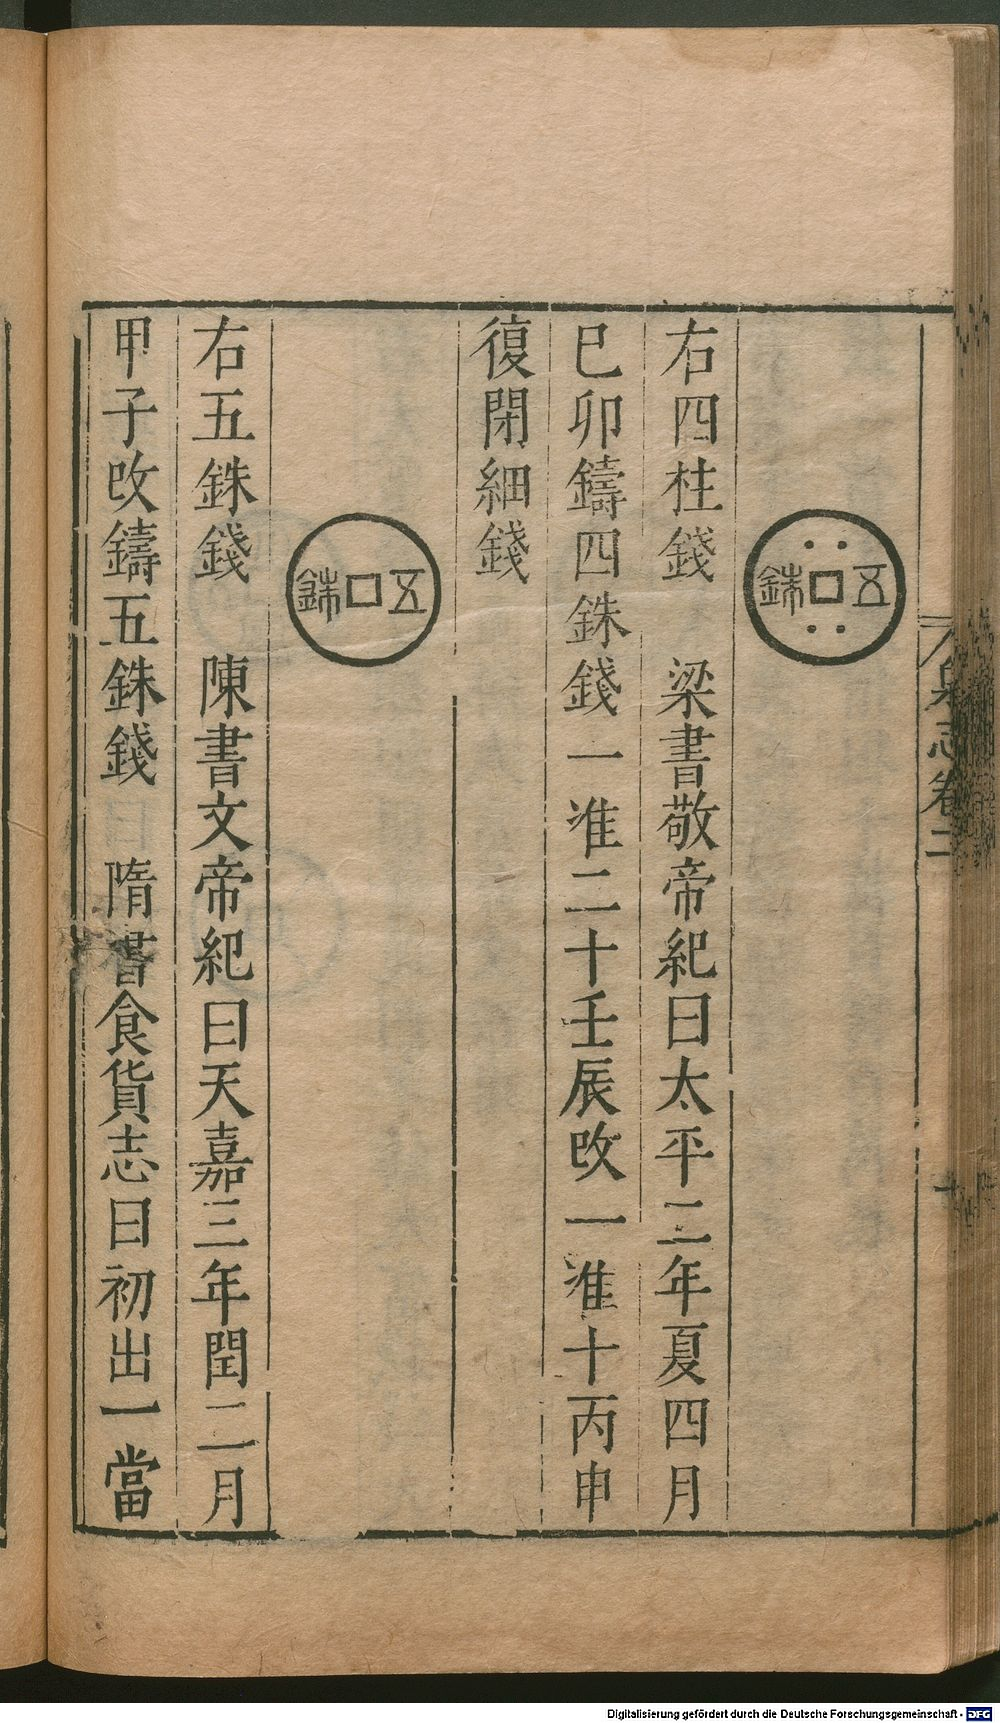 泉志卷二
五銖
右四柱錢 梁書敬帝紀曰太平二年夏四月
巳卯鑄四銖錢一准二十壬辰改一准十丙申
復閉細錢
五銖
右五銖錢 陳書文帝紀曰天嘉三年閏二月
甲子改鑄五銖錢 隋書食貨志曰初出一當
Digitalisierung gefördert durch die Deutsche Forschungsgemeinschaft - DFG